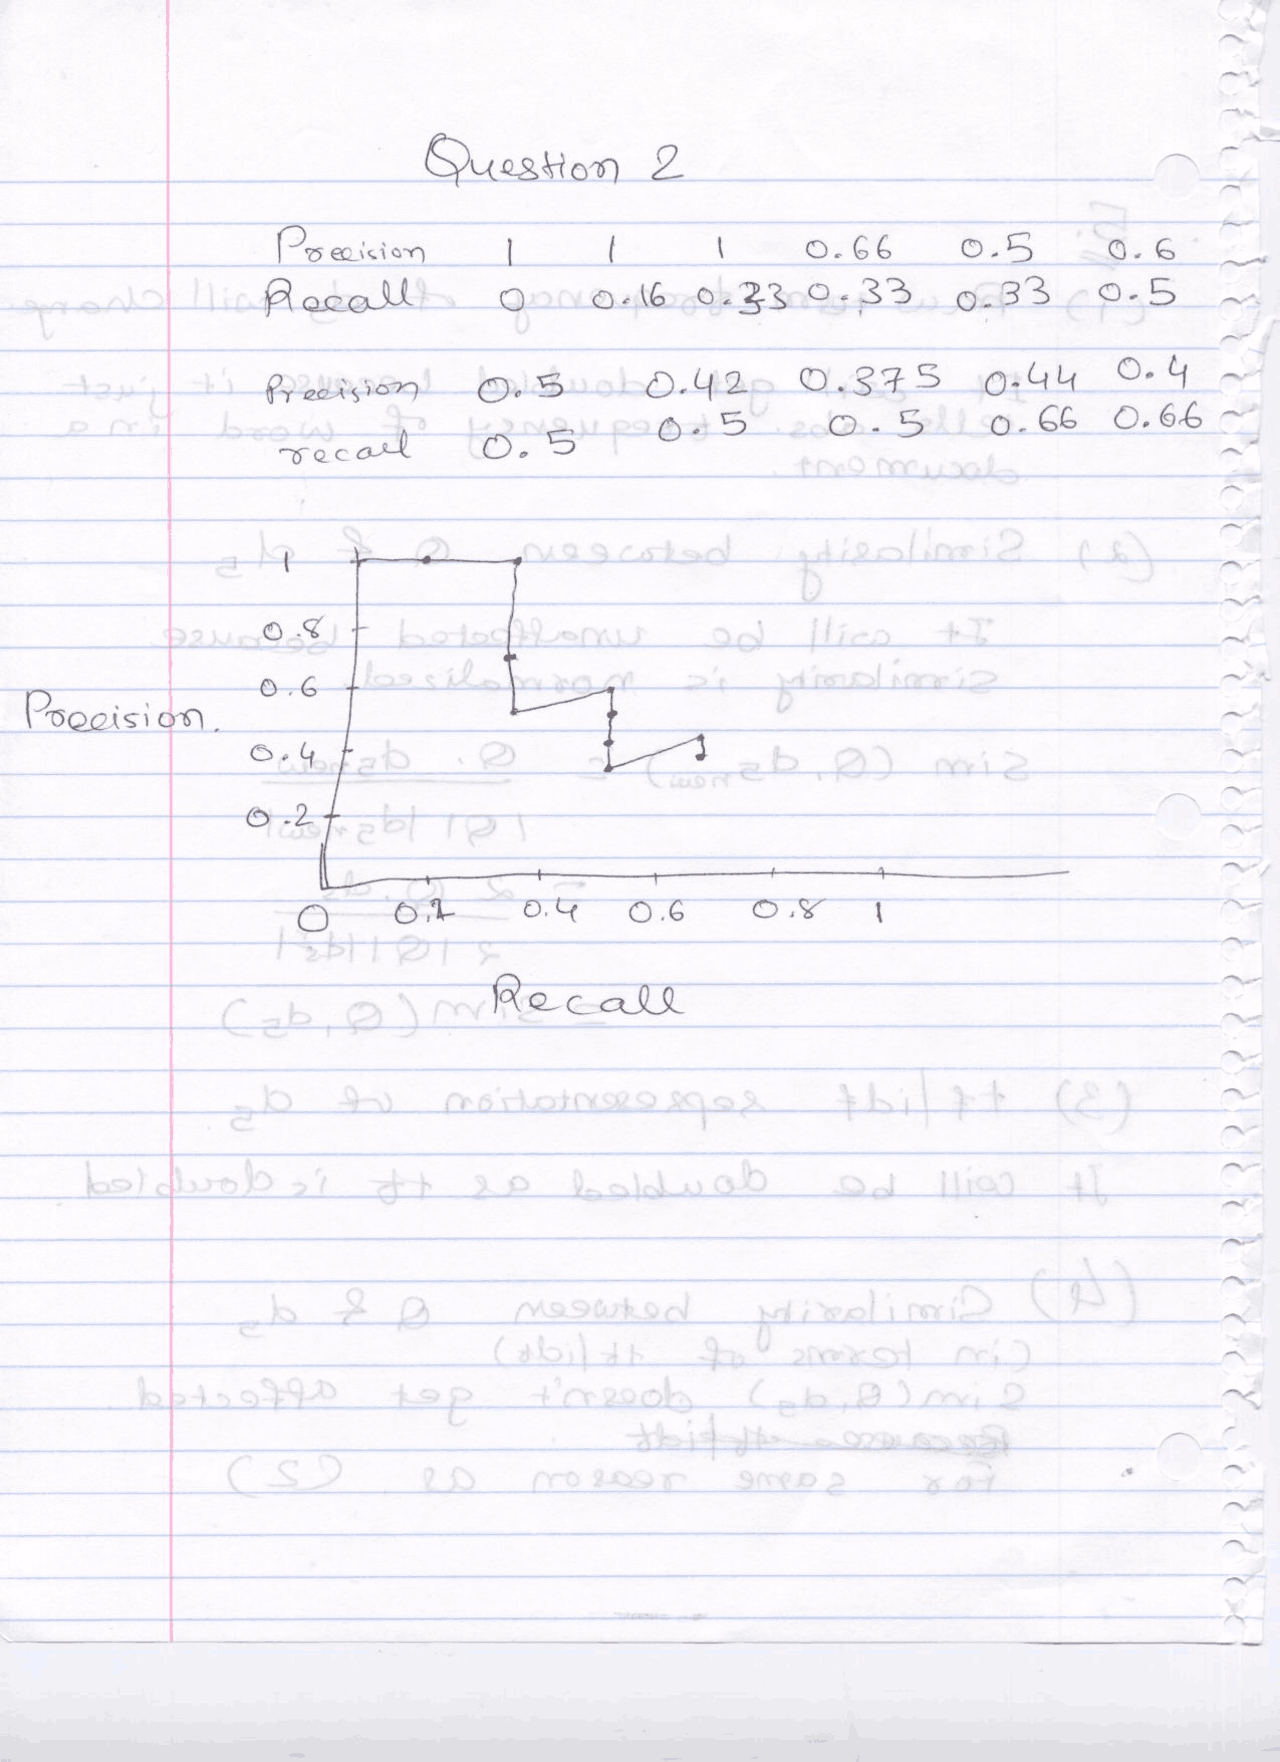 Question 2
Precision 1 1 1 0.66 0.5 0.6
Recall 0 0.16 0.33 0.33 0.33 0.5
Precision 0.5 0.42 0.375 0.44 0.4
recall 0.5 0.5 0.5 0.66 0.66
1
0.8
0.6
Precision.
0.4
0.2
0 0.2 0.4 0.6 0.8 1
Recall